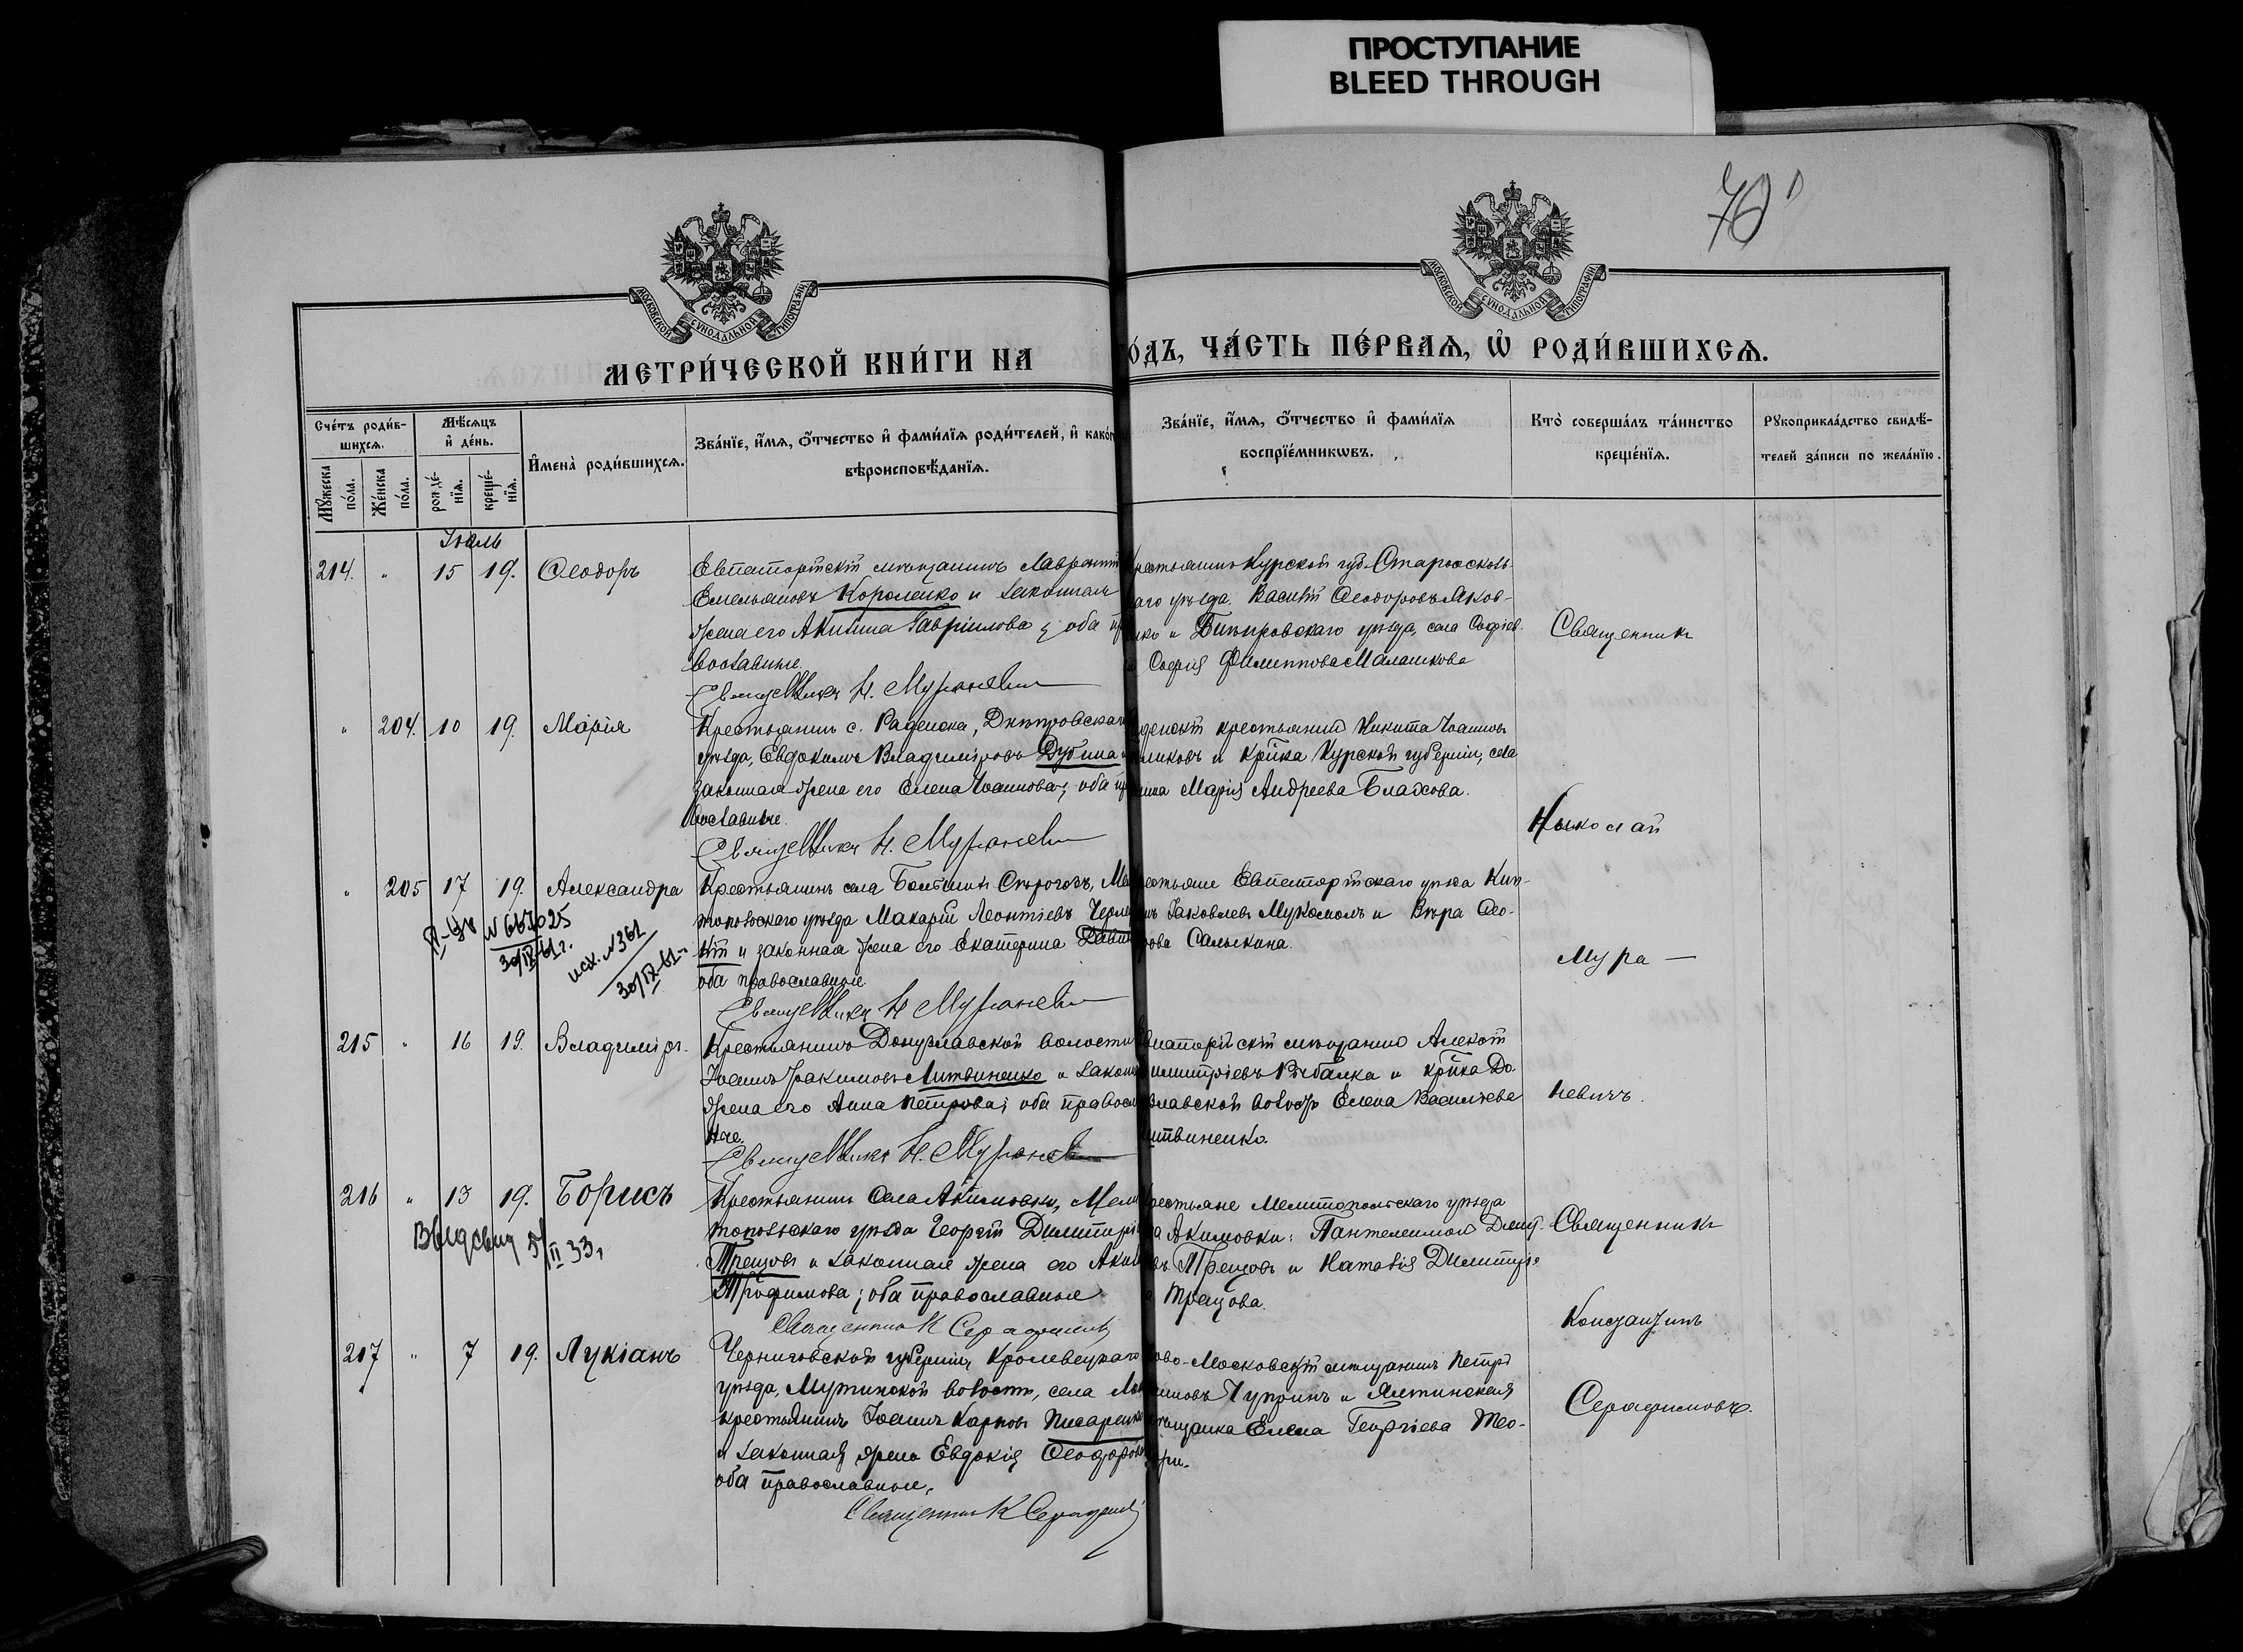 ПРОСТУПАНИЕ
BLEED THROUGH
70
МОСКОВСКОЙ СѴНОДАЛЬНОЙ ТИПОГРАФІИ
МОСКОВСКОЙ СѴНОДАЛЬНОЙ ТИПОГРАФІИ
МЕТРИ́ЧЕСКОЙ КНИ́ГИ НА
О́ДЪ, ЧА́СТЬ ПЕ́РВАѦ, Ѡ҆ РОДИ́ВШИХСѦ.
Сче́тъ роди́в-
шихсѧ.
Мꙋ́жеска по́ла.
Же́нска по́ла.
Мѣ́сѧцъ и҆ де́нь.
рожде́-нїѧ.
креще́-нїѧ.
И҆мена̀ роди́вшихсѧ.
Зва́нїе, и҆́мѧ, ѻ҆́тчество и҆ фами́лїѧ роди́телей, и҆ како́г
вѣроисповѣ́данїѧ.
Зва́нїе, и҆́мѧ, ѻ҆́тчество и҆ фами́лїѧ
воспрїе́мникѡвъ.
Кто̀ соверша́лъ та́инство
креще́нїѧ.
Рꙋкоприкла́дство свидѣ́-
телей за́писи по жела́нїю.
Іюль
214. " 15 19. Ѳеодоръ
Евпаторійскій мѣщанинъ Лаврентій
Емельяновъ Короленко и законная
жена его Акилина Гавріилова; оба пр
вославные.
Священникъ Н. Мураневичъ
рестьянинъ Курской губ. Старооскољ-
аго уѣзда, Василій Ѳеодоровъ Яков-
ко и Днѣпровскаго уѣзда, села Софіев.
Софія Филиппова Малашкова
Священникъ
" 204. 10 19. Марія
Крестьянинъ с. Раденска, Днѣпровскаго
уѣзда, Евдокимъ Владиміровъ Дубина и
законная жена его Елена Іоаннова; оба пр
вославные.
Священникъ Н. Мураневичъ
денскій крестьянинъ Никита Іоанновъ
ликовъ и кр̃нка Курской губерніи, села
ина Марія Андреева Блахова.
Николай
" 205 17 19. Александра
Крестьянинъ села Большихъ Сѣрогозъ, Ме
топольскаго уѣзда Макарій Леонтіевъ
кій и законная жена его Екатерина
оба православные.
Священникъ Н Мураневичъ
рестьяне Евпаторійскаго уѣзда Кип-
нъ Іаковлевъ Мукомолъ и Вѣра Ѳео-
рова Салыкина.
Мура-
N 667025
30/IX-61г.
исх. N361
30/IX-61г.
215 " 16 19. Владиміръ.
Крестьянинъ Донузлавской волости
Іоаннъ Іоакимовъ Литвиненко и законн
жена его Анна Петрова; оба правосл
ные.
Священникъ Н. Мураневичъ
впаторійскій мѣщанинъ Алексій
имитріевъ Рыбалка и кр̃нка До-
злавской волости Елена Васильева
итвиненко.
невичъ.
216 " 13 19. Борисъ
Выд свид 5/II 33г
Крестьянинъ села Акимовки, Мели
топольскаго уѣзда Георгій Димитрі
Трещовъ и законная жена его Аки
Трофимова; оба православные
Священникъ К Серафимовъ
рестьяне Мелитопольскаго уѣзда
а Акимовки: Пантелеимонъ Димит-
въ Трещовъ и Наталія Димитріе
а Трещова.
Священникъ
Константинъ
217 " 7 19. Лукіанъ
Черниговской губерніи, Кролевецкаго
уѣзда, Мутинской волости, села
крестьянинъ Іоаннъ Карповъ Писаренко
и законная жена Евдокія Ѳеодорова
оба православные.
Священникъ К Серафимовъ
ово-Московскій мѣщанинъ Петръ
новъ Чупринъ и Ялтинская
ѣщанка Елена Георгіева Тео-
ори.
Серафимовъ.